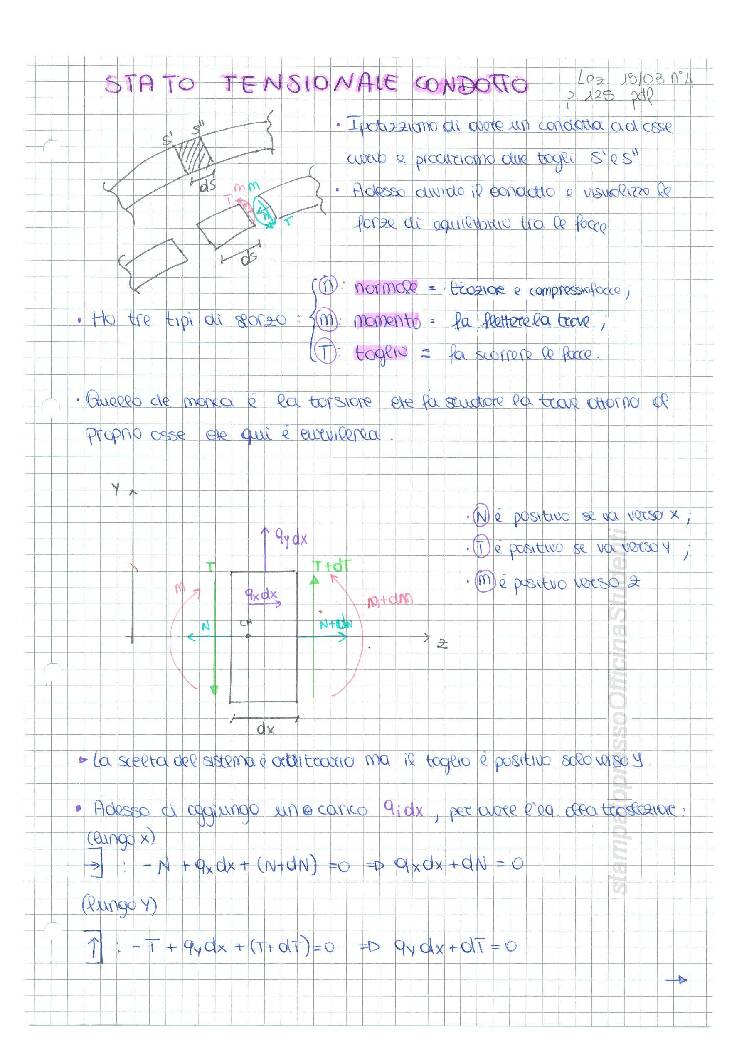 STATO TENSIONALE CONDOTTO
Lez 19/03 n°1
p 125 pdf
• Ipotizziamo di avere un condotto ad asse
curvo e pratichiamo due tagli S' e S"
• Adesso divido il condotto e visualizzo le
forze di equilibrio tra le facce
S' S"
ds
m m
T T
ds
• Ho tre tipi di sforzo:
n: normale = trazione e compressione,
m: momento = fa flettere la trave;
T: taglio = fa scorrere le facce.
• Quello che manca è la torsione che fa ruotare la trave attorno al
proprio asse che qui è curvilinea.
Y
• N è positivo se va verso x;
• T è positivo se va verso Y;
• m è positivo verso z
qydx
T T+dT
M qxdx M+dM
N CM N+dN
z
dx
▸ La scelta del sistema è arbitrario ma il taglio è positivo solo verso y.
• Adesso ci aggiungo un carico qidx, per avere l'eq. alla traslazione:
(lungo x)
→ : -N + qxdx + (N+dN) = 0 ⇒ qxdx + dN = 0
(lungo Y)
↑ : -T + qydx + (T+dT) = 0 ⇒ qydx + dT = 0
→
stampa presso Officina Studenti